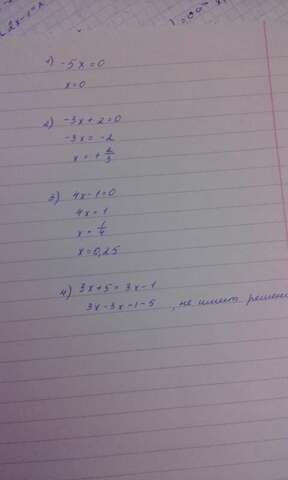 1) -5x=0
x=0
2) -3x+2=0
-3x=-2
x=+2/3
3) 4x-1=0
4x=1
x=1/4
x=0,25
4) 3x+5=3x-1
3x-3x-1-5 , не имеет